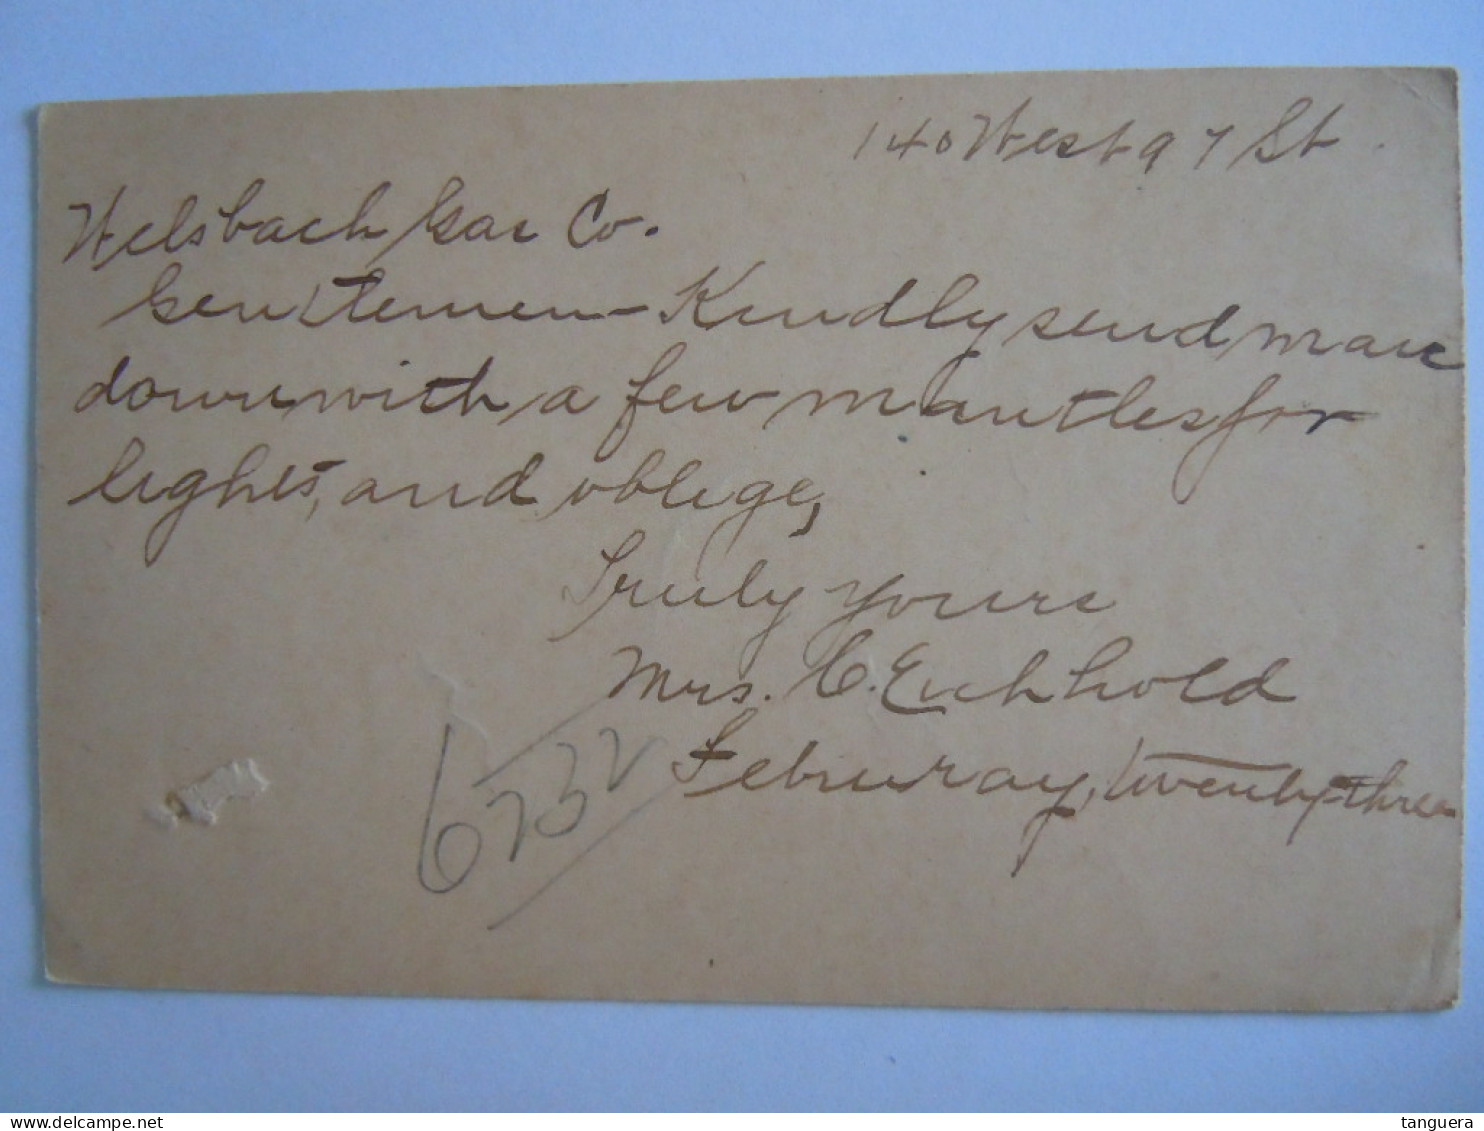 140 West 97 St.
Welsbach Gas Co.
Gentlemen - Kindly send man
down with a few mantles for
lights, and oblige,
Truly yours
Mrs. C. Eichhold
Februray, twenty-three
6732
tanguera
delcampe.net